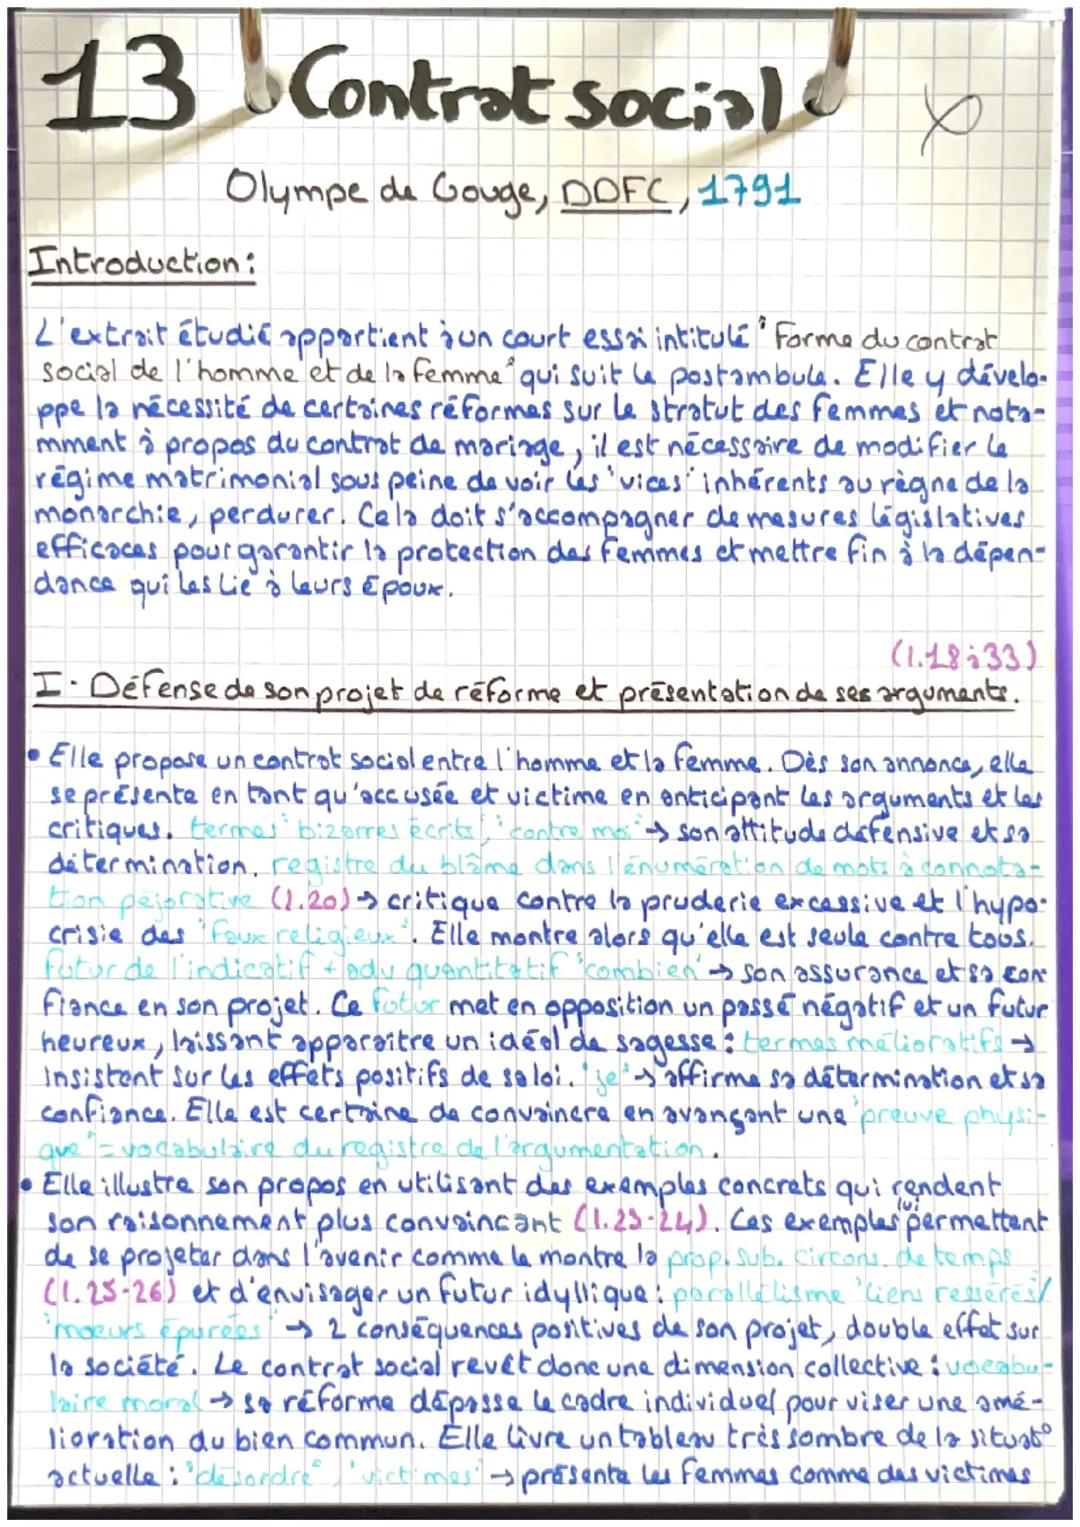 13 Contrat social
Olympe de Gouge, DDFC, 1791
Introduction:
L'extrait étudié appartient à un court essai intitulé "Forme du contrat
social de l'homme et de la femme" qui suit le postambule. Elle y dévelo-
ppe la nécessité de certaines réformes sur le stratut des femmes et nota-
mment à propos du contrat de mariage, il est nécessaire de modifier le
régime matrimonial sous peine de voir les "vices" inhérents au règne de la
monarchie, perdurer. Cela doit s'accompagner de mesures législatives
efficaces pour garantir la protection des femmes et mettre fin à la dépen-
dance qui les lie à leurs époux.
(l.18 à 33)
I - Défense de son projet de réforme et présentation de ses arguments.
• Elle propose un contrat social entre l'homme et la femme. Dès son annonce, elle
se présente en tant qu'accusée et victime en anticipant les arguments et les
critiques. termes "bizarres écrits", "contre moi" → son attitude défensive et sa
détermination. registre du blâme dans l'énumération de mots à connota-
tion péjorative (l.20) → critique contre la pruderie excessive et l'hypo-
crisie des "faux religieux". Elle montre alors qu'elle est seule contre tous.
futur de l'indicatif + adv quantitatif "combien" → son assurance et sa con
fiance en son projet. Ce futur met en opposition un passé négatif et un futur
heureux, laissant apparaître un idéal de sagesse : termes mélioratifs →
insistent sur les effets positifs de sa loi. "je" → affirme sa détermination et sa
confiance. Elle est certaine de convaincre en avançant une "preuve physi-
que" = vocabulaire du registre de l'argumentation.
• Elle illustre son propos en utilisant des exemples concrets qui rendent
son raisonnement plus convaincant (l.23-24). Ces exemples lui permettent
de se projeter dans l'avenir comme le montre la prop. sub. circons. de temps
(l.25-26) et d'envisager un futur idyllique : parallélisme "liens resserés"/
"moeurs épurées" → 2 conséquences positives de son projet, double effet sur
la société. Le contrat social revêt donc une dimension collective : vocabu-
laire moral → sa réforme dépasse le cadre individuel pour viser une amé-
lioration du bien commun. Elle livre un tableau très sombre de la situat°
actuelle : "désordre", "victimes" → présente les femmes comme des victimes